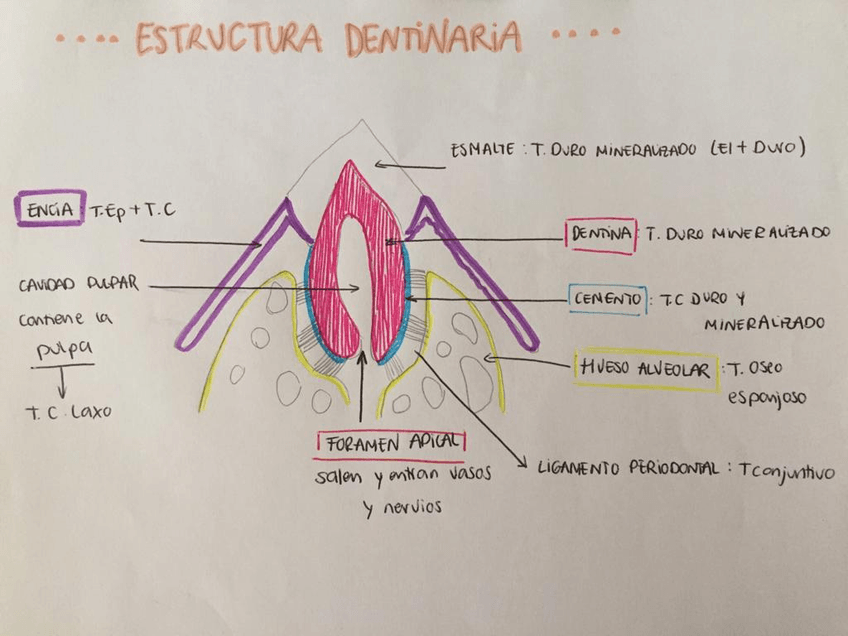 .... ESTRUCTURA DENTINARIA ....
ESMALTE : T. DURO MINERALIZADO (El + DURO)
ENCIA T.Ep + T.C
DENTINA : T. DURO MINERALIZADO
CAVIDAD PULPAR
contiene la
pulpa
T.C. Laxo
CEMENTO : T.C DURO Y
MINERALIZADO
HUESO ALVEOLAR : T. Oseo
esponjoso
FORAMEN APICAL
salen y entran vasos
y nervios
LIGAMENTO PERIODONTAL : T conjuntivo